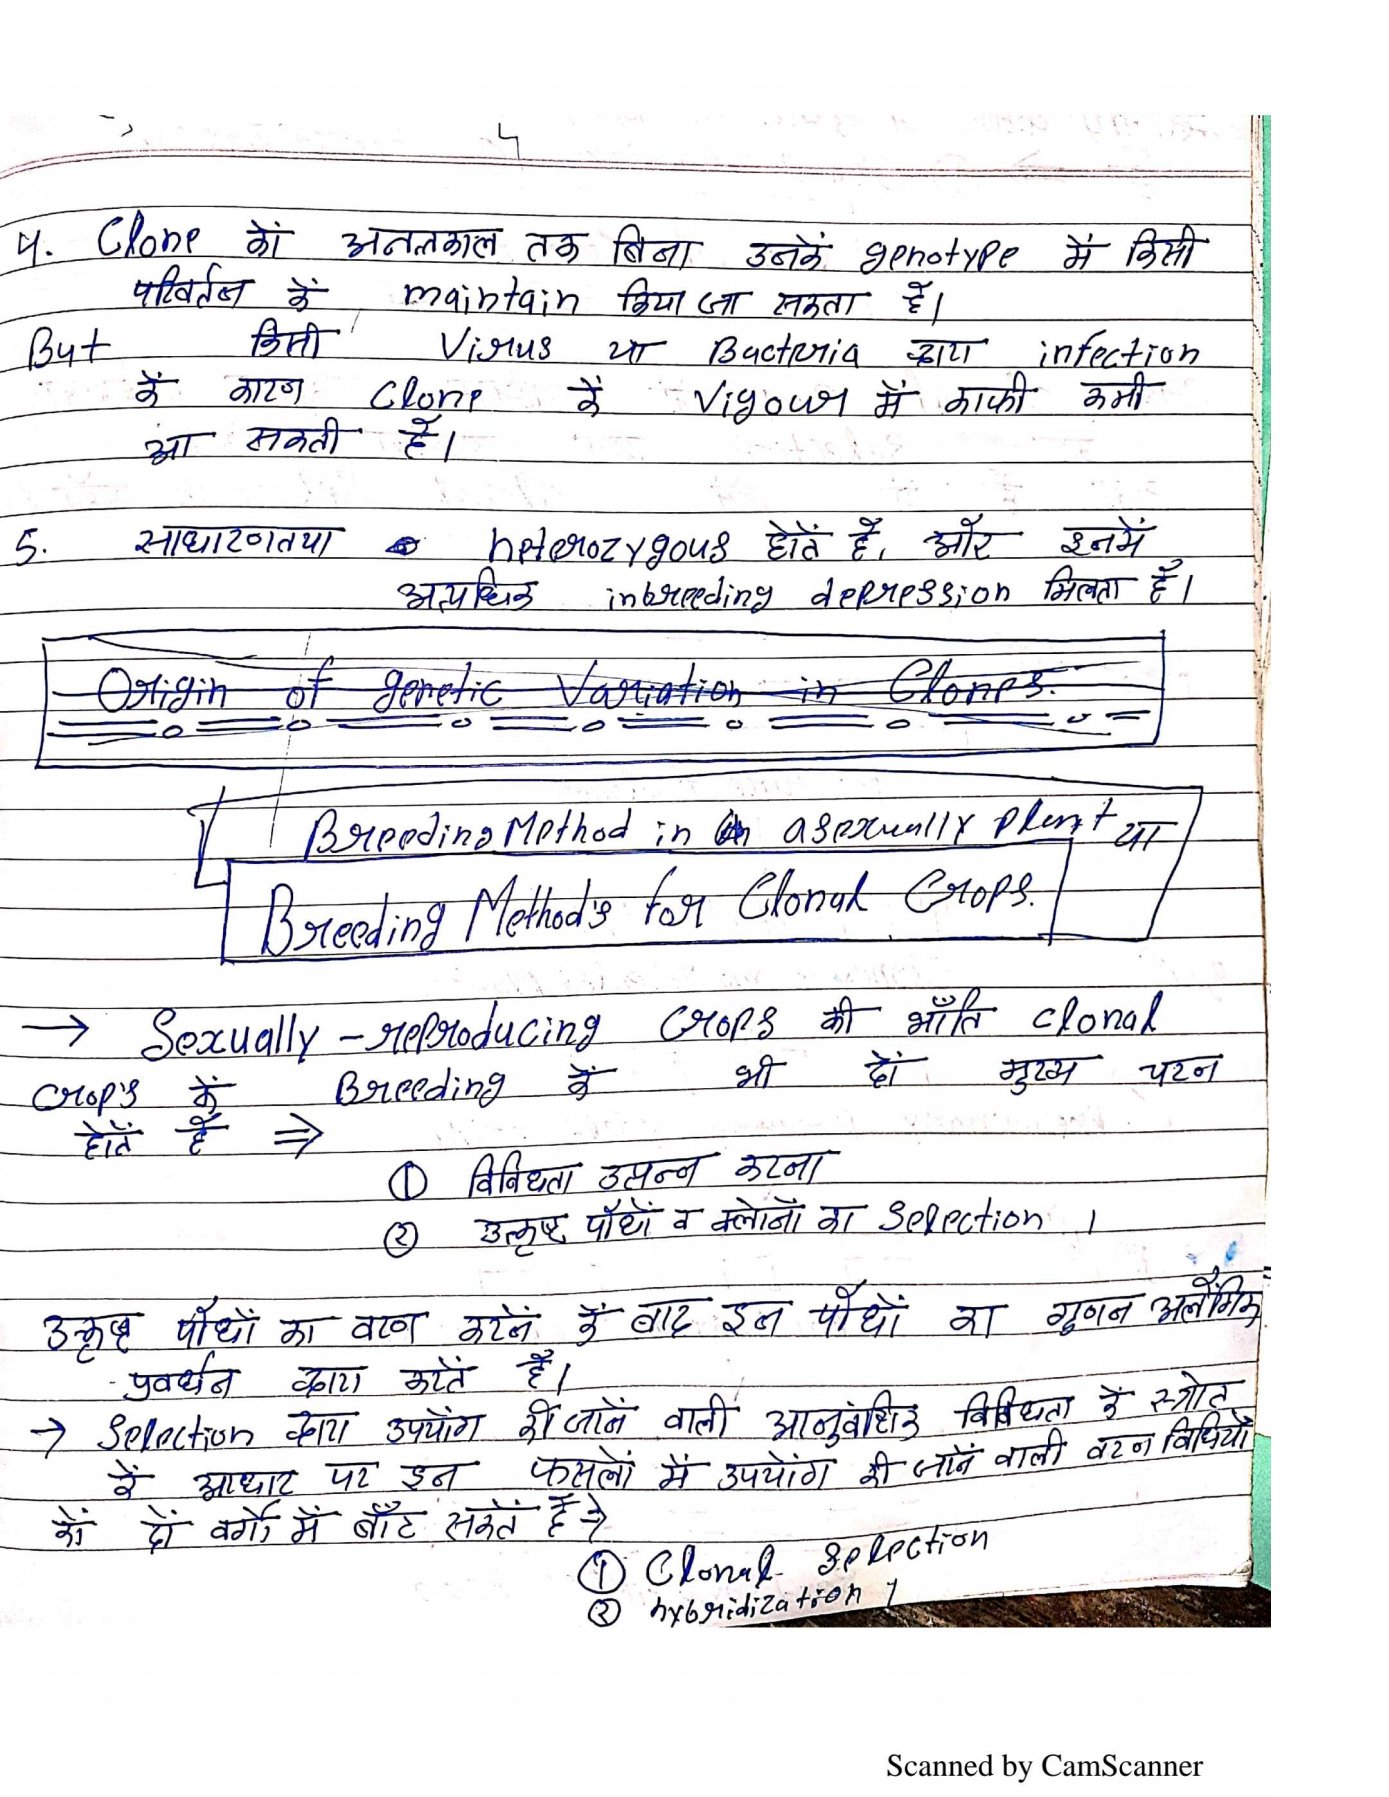 4
4. Clone कों अनन्तकाल तक बिना उनकें genotype में किसी
परिवर्तन कें maintain किया जा सकता हैं।
But किसी Virus या Bacteria द्वारा infection
कें कारण Clone कें Vigour में काफी कमी
आ सकती हैं।
5. साधारणतया heterozygous होतें हैं, और इनमें
अत्यधिक inbreeding depression मिलता हैं।
Origin of genetic Variation in Clones.
Breeding Method in asexually plant या
Breeding Method's for Clonal Crops.
→ Sexually-reproducing Crops की भाँति clonal
Crop's कें Breeding कें भी दों मुख्य चरन
होतें हैं ⇒
① विविधता उत्पन्न करना
② उत्कृष्ट पौधों व क्लोनों का Selection ।
उत्कृष्ट पौधों का वरण करनें कें बाद इन पौधों का गुणन अलैंगिक
प्रवर्धन द्वारा करतें हैं।
→ Selection द्वारा उपयोंग की जानें वाली आनुवंशिक विविधता कें स्त्रोत
कें आधार पर इन फसलों में उपयोंग की जानें वाली वरन विधियों
कों दों वर्गों में बाँट सकतें हैं→
① Clonal Selection
② hybridization ।
Scanned by CamScanner